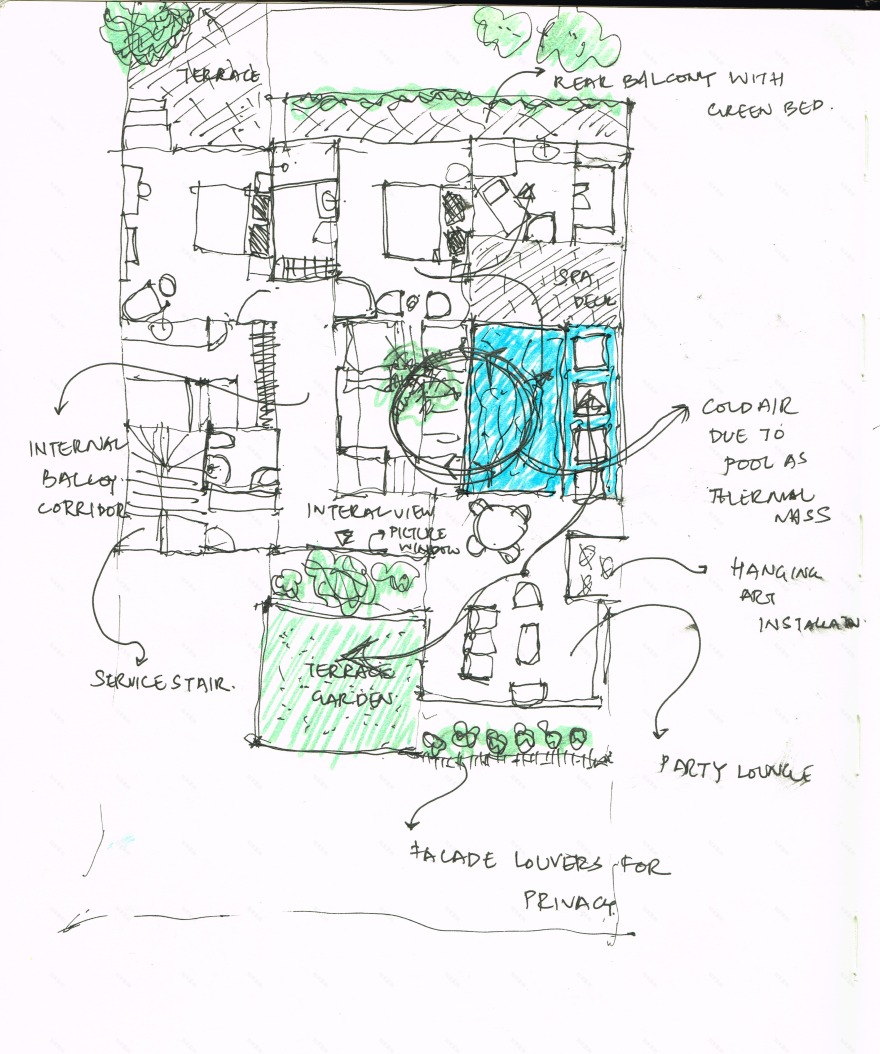 TERRACE
REAR BALCONY WITH
GREEN BED.
SPA
DECK
COLD AIR
DUE TO
POOL AS
THERMAL
MASS
INTERNAL
BALCOY
CORRIDOR
INTERAL VIEW
PICTURE
WINDOW
HANGING
ART
TERRACE
GARDEN
SERVICE STAIR.
PARTY LOUNGE
FACADE LOUVERS FOR
PRIVACY